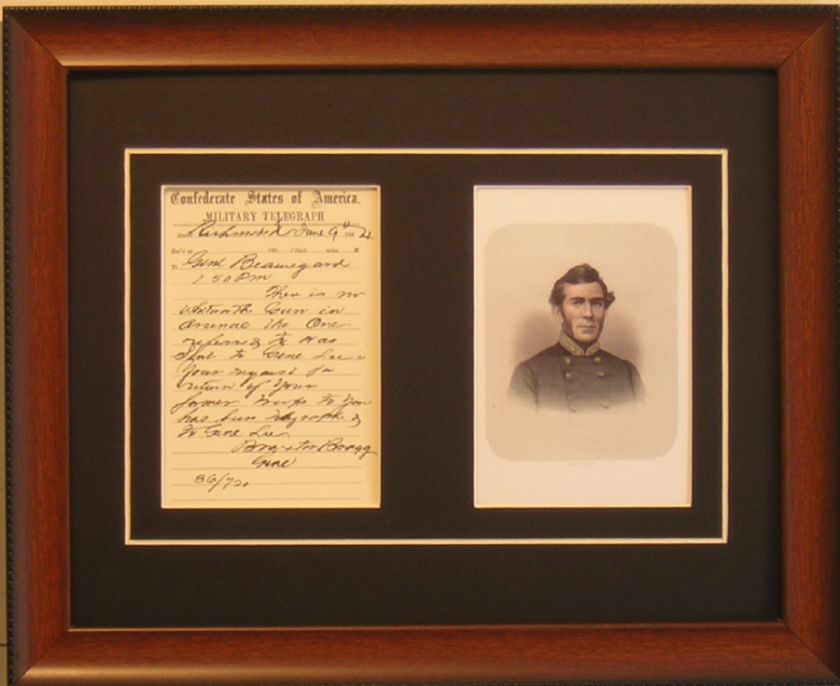 Confederate States of America.
MILITARY TELEGRAPH
Richmond June 9th 186 4
To Genl Beauregard
1 50 PM
There is no
Whitworth Gun in
Arsenal the One
referred to was
Sent to Genl Lee
Your request for
return of Your
former troops to You
has been telegraphed
to Genl Lee
Braxton Bragg
Genl
86/720